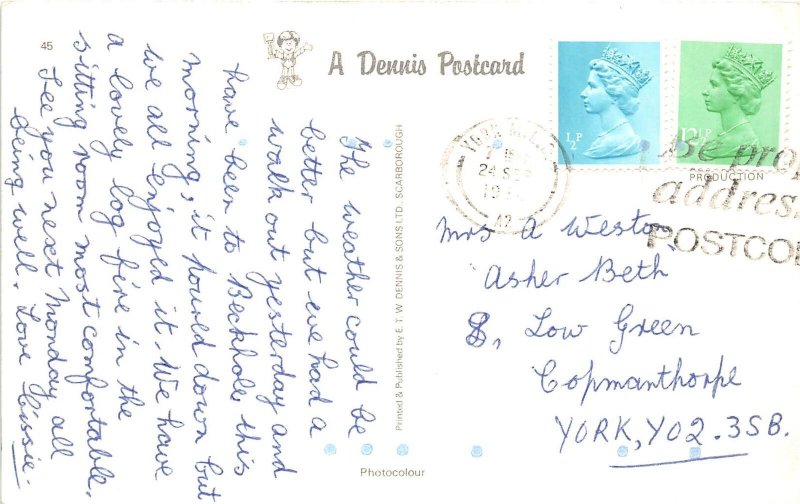 45
A Dennis Postcard
The weather could be
better but we had a
walk out yesterday and
have been to Beckhole this
morning, it poured down but
we all enjoyed it. We have
a lovely log fire in the
sitting room most comfortable.
See you next Monday all
being well. Love Cissie.
Printed & Published by E. T. W. DENNIS & SONS LTD., SCARBOROUGH
Photocolour
½P
12½P
PRODUCTION
YORK
24 SEP
19
use prop
address
POSTCO
Mrs A Weston
Asher Beth
8, Low Green
Copmanthorpe
YORK, YO2. 3SB.